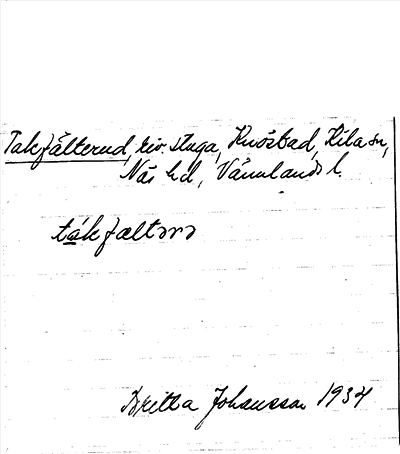 Takfälterud, riv. stuga, Knösbad, Kila sn,
Näs hd, Värmlands l.
tákfæltərə
Britta Johansson 1934